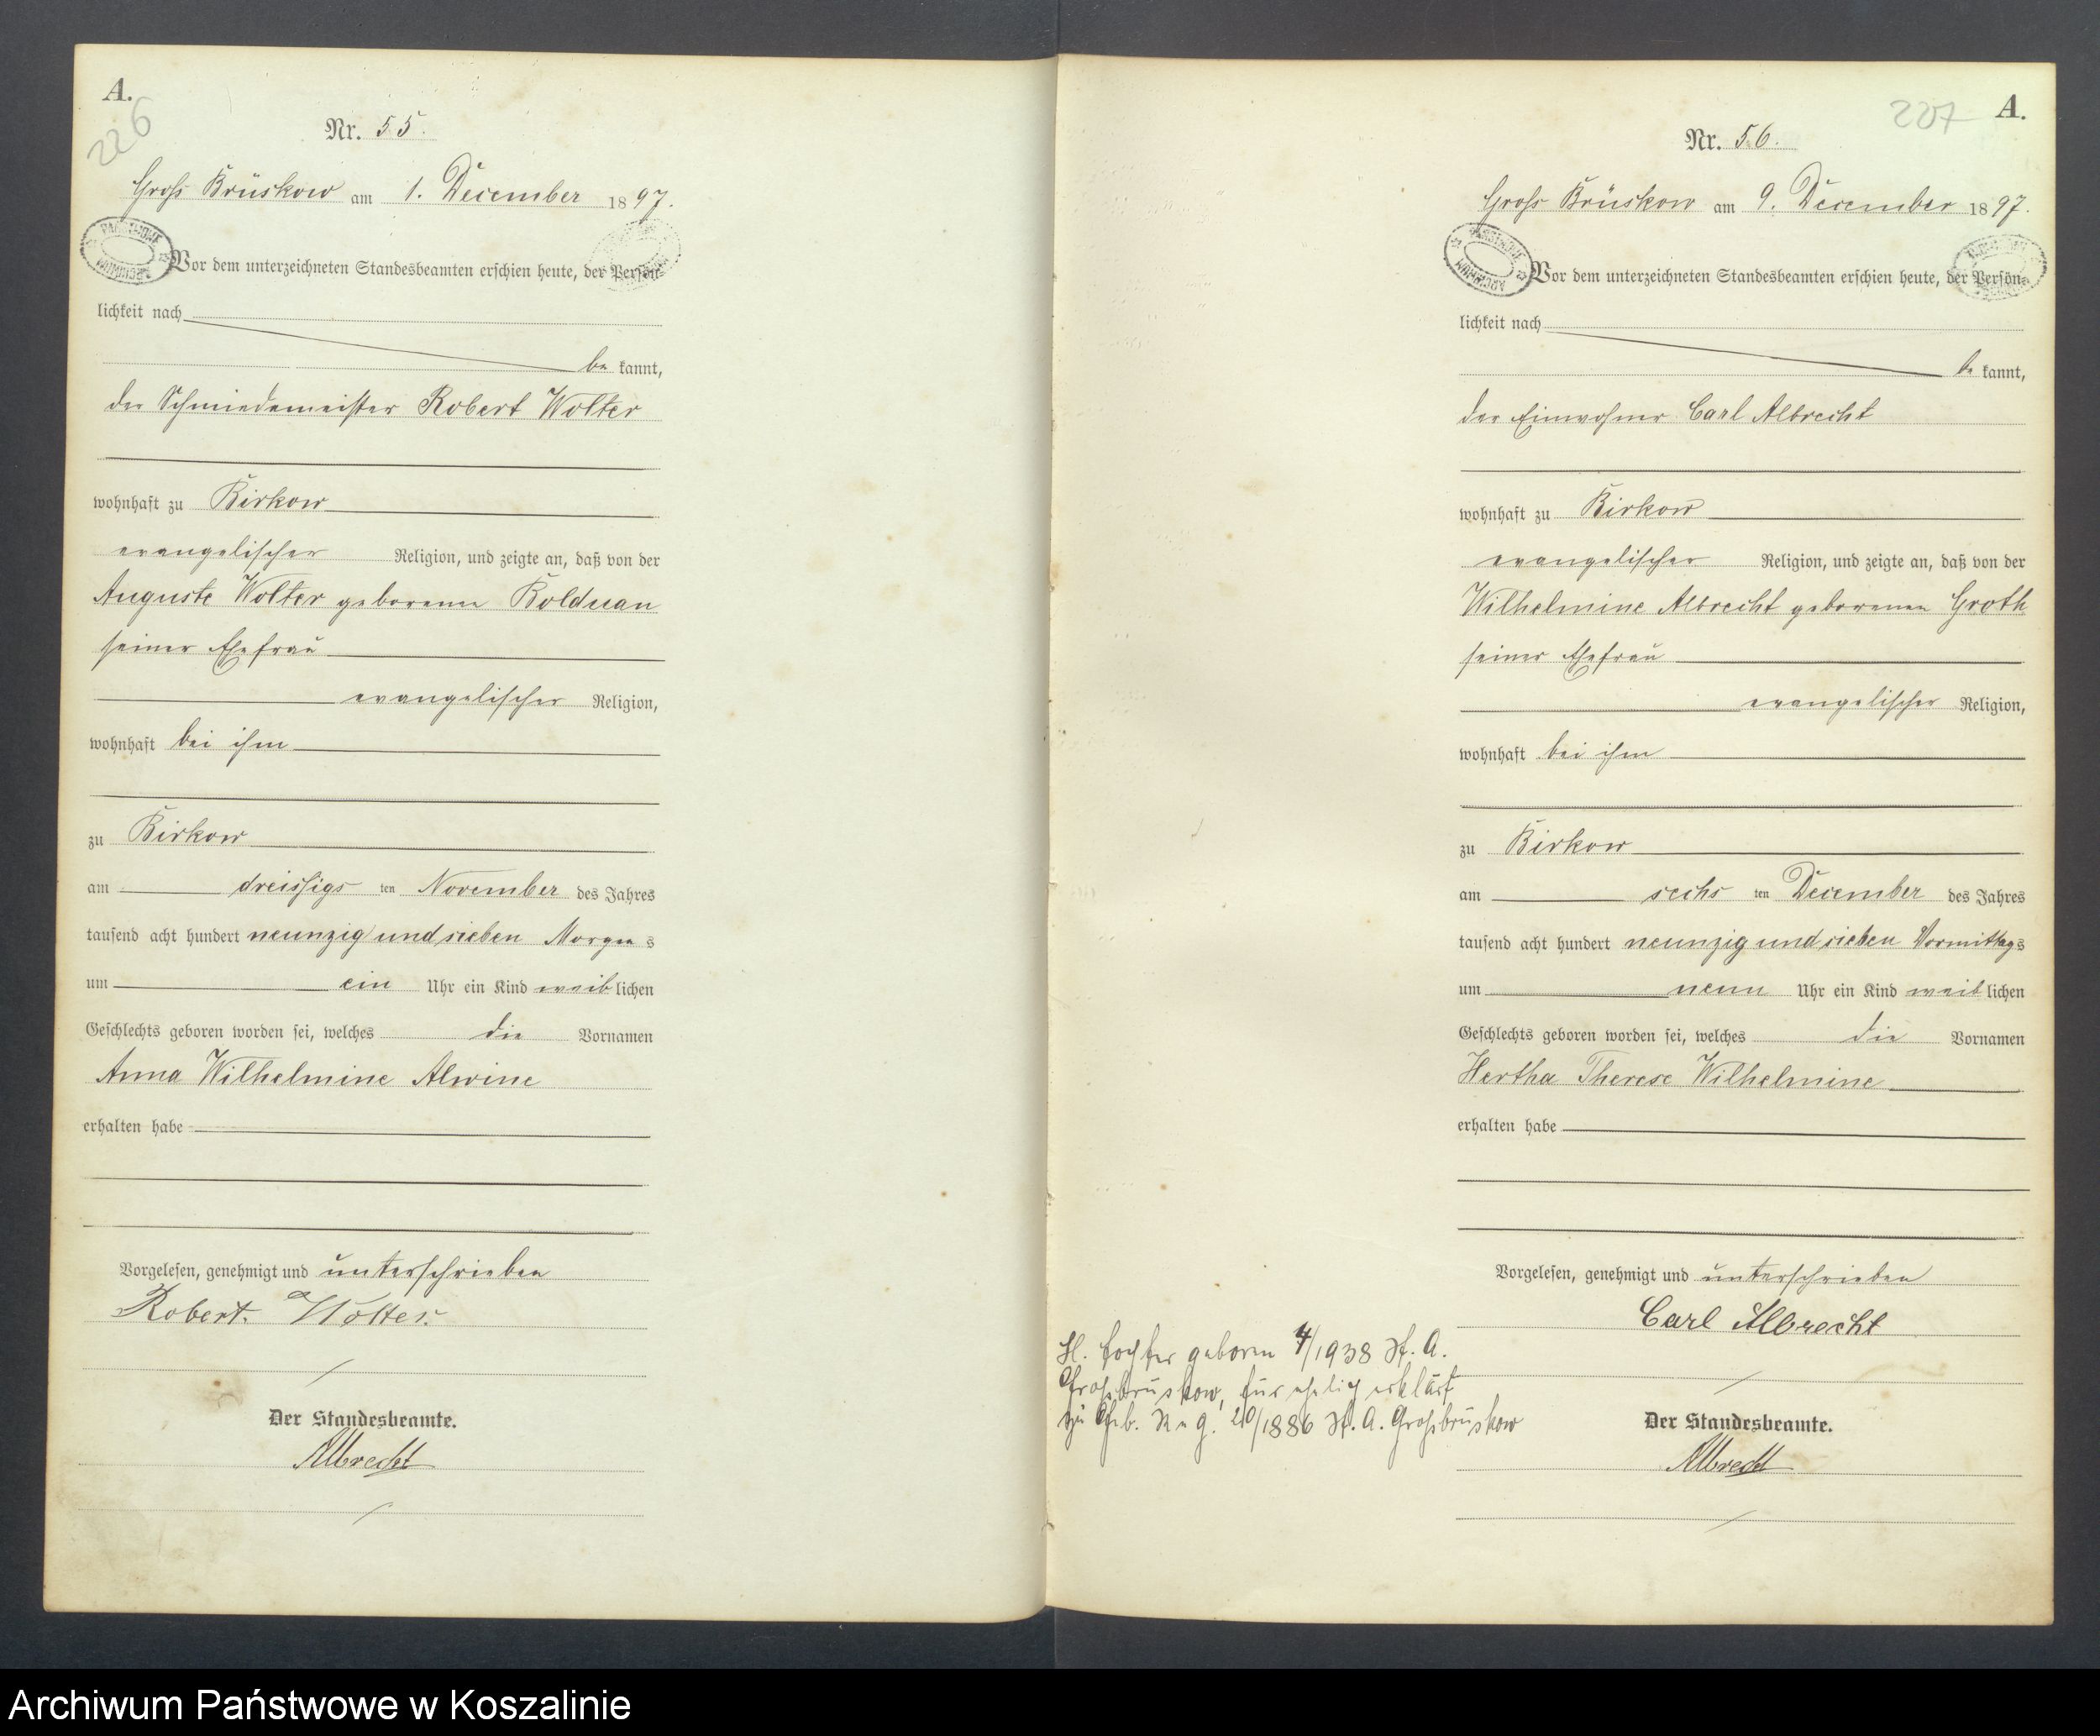 A.
226
Nr. 55.
Groß Brüskow am 1. December 1897.
Vor dem unterzeichneten Standesbeamten erschien heute, der Persön-
lichkeit nach
be kannt,
der Schmiedemeister Robert Wolter
wohnhaft zu Birkow
evangelischer Religion, und zeigte an, daß von der
Auguste Wolter geborenen Bolduan
seiner Ehefrau
evangelischer Religion,
wohnhaft bei ihm
zu Birkow
am dreissigs ten November des Jahres
tausend acht hundert neunzig und sieben Morgen s
um ein Uhr ein Kind weiblichen
Geschlechts geboren worden sei, welches die Vornamen
Anna Wilhelmine Alwine
erhalten habe
Vorgelesen, genehmigt und unterschrieben
Robert Wolter.
Der Standesbeamte.
Albrecht
227
A.
Nr. 56.
Groß Brüskow am 9. December 1897.
Vor dem unterzeichneten Standesbeamten erschien heute, der Persön-
lichkeit nach
be kannt,
der Einwohner Carl Albrecht
wohnhaft zu Birkow
evangelischer Religion, und zeigte an, daß von der
Wilhelmine Albrecht geborenen Groth
seiner Ehefrau
evangelischer Religion,
wohnhaft bei ihm
zu Birkow
am sechs ten December des Jahres
tausend acht hundert neunzig und sieben Vormittags
um neun Uhr ein Kind weiblichen
Geschlechts geboren worden sei, welches die Vornamen
Hertha Therese Wilhelmine
erhalten habe
Vorgelesen, genehmigt und unterschrieben
Carl Albrecht
Der Standesbeamte.
Albrecht
Tochter geboren 4/1938 St. A.
Großbrüskow, für ehelich erklärt
Geb. Reg. 20/1886 St. A. Großbrüskow
Archiwum Państwowe w Koszalinie